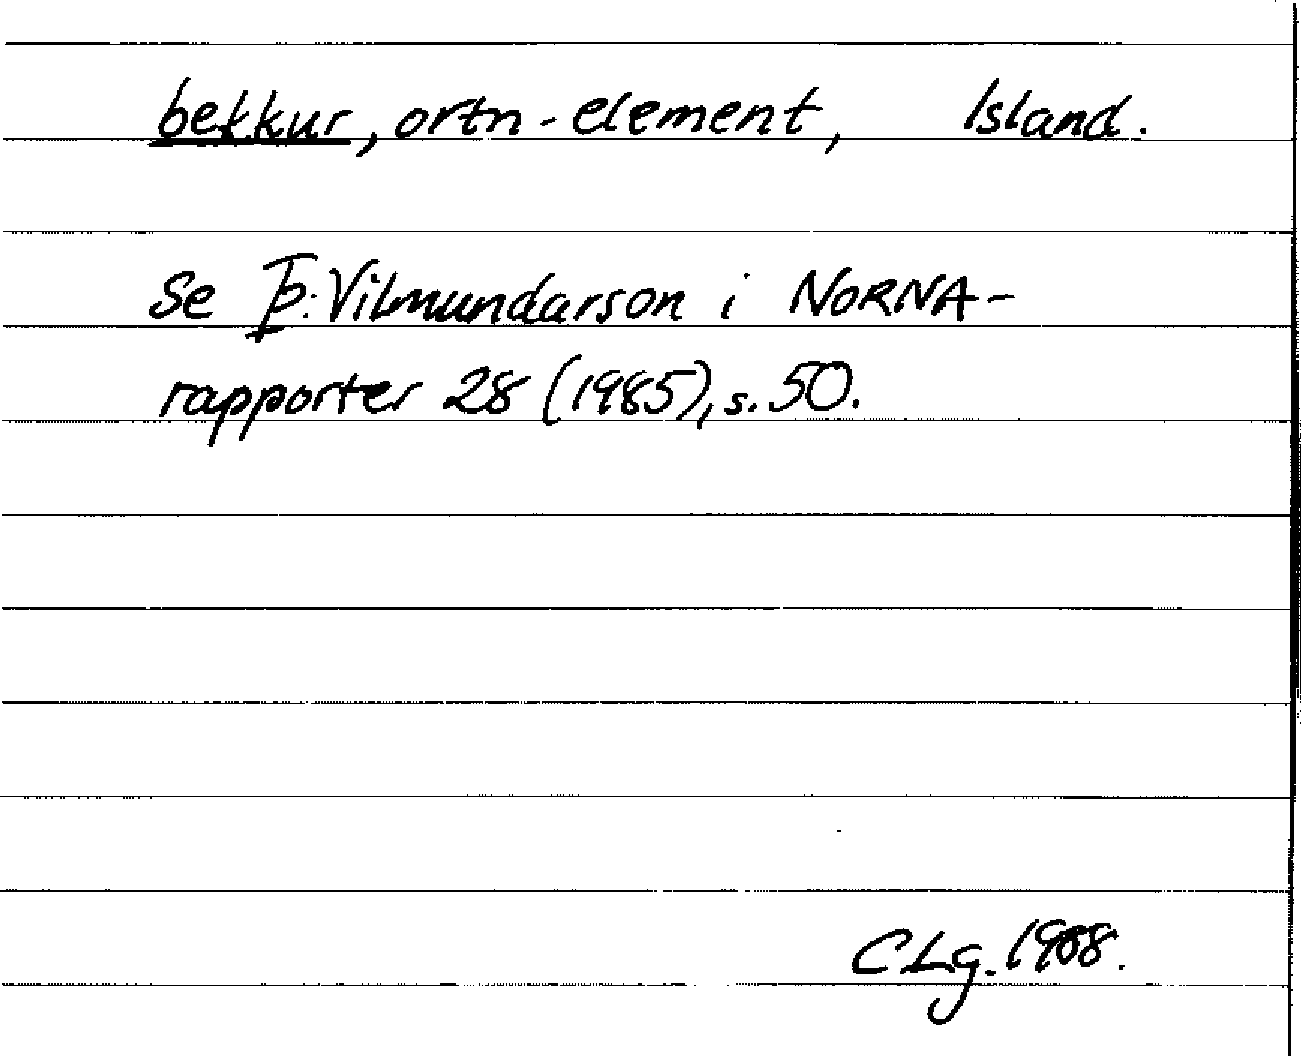 bekkur, ortn-element, Island.
Se Þ. Vilmundarson i NORNA-
rapporter 28 (1985), s. 50.
CLg. 1988.